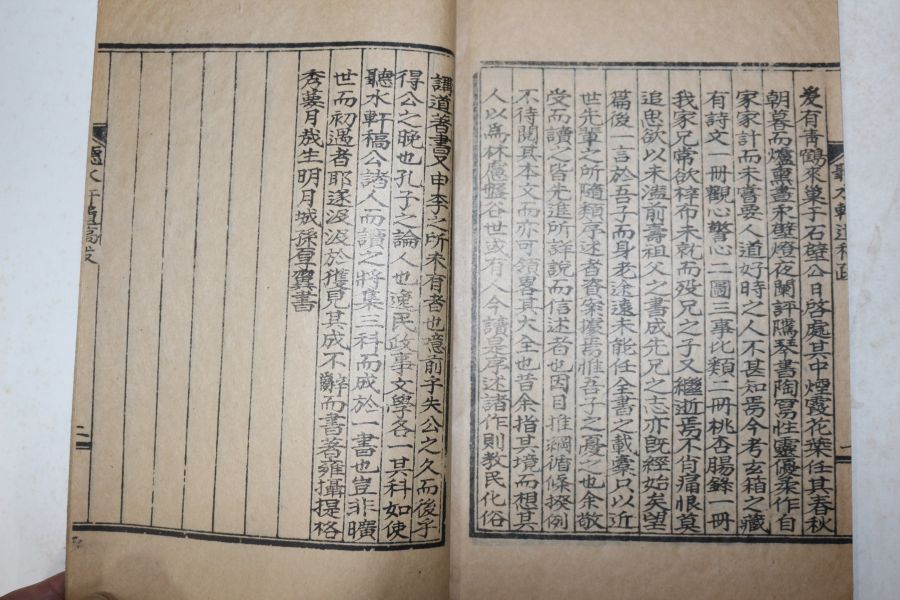 爰有靑鶴來巢于石壁公日啓處其中煙霞花葉任其春秋
朝暮而爐熏晝永壁燈夜闌評騭琴書陶冩性靈優柔作自
家家計而未嘗要人道好時之人不甚知焉今考玄箱之藏
有詩文一冊觀心警心二圖三事比類二冊桃杏腸錄一冊
我家兄常欲梓布未就而歿兄之子又繼逝焉不肖痛恨莫
追思欲以未溘前壽祖父之書成先兄之志亦旣經始矣望
篇後一言於吾子而身老途遠未能任全書之載橐只以近
世先輩之所隨類序述者咨案縻焉惟吾子之憂之也余敬
受而讀之皆先進所詳說而信述者也因目推綱循條揆例
不待閱其本文而亦可領畧其大全也昔余指其境而想其
人以爲林慮盤谷世或有人今讀是序述諸作則敎民化俗
聽水軒遺稿跋
一
講道著書又申李之所未有者也噫前乎失公之久而後乎
得公之晚也孔子之論人也逸民政事文學各一其科如使
聽水軒稿公諸人而讀之將集三科而成於一書也豈非曠
世而初遇者耶遂汲汲於獲見其成不辭而書著雍攝提格
秀葽月哉生明月城孫厚翼書
聽水軒遺稿跋
二